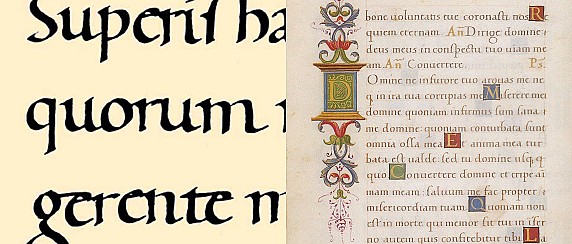 Superis ha
quorum
gerente m
bone uoluntatis tue coronasti nos R
quiem eternam. Añ Dirige domine
deus meus in conspectu tuo uiam me
am. Añ Conuertere. Ps.
D Omine ne in furore tuo arguas me ne
q in ira tua corripias me M iserere me
domine quoniam infirmus sum sana
me domine quoniam conturbata sunt
omnia ossa mea E t anima mea tur
bata est ualde sed tu domine usq q
quo C onuertere domine et eripe ai
mam meam: saluum me fac propter
misericordiam tuam Q uoniam non
est in morte qui memor sit tui in ifer
no autem quis confitebitur tibi L a